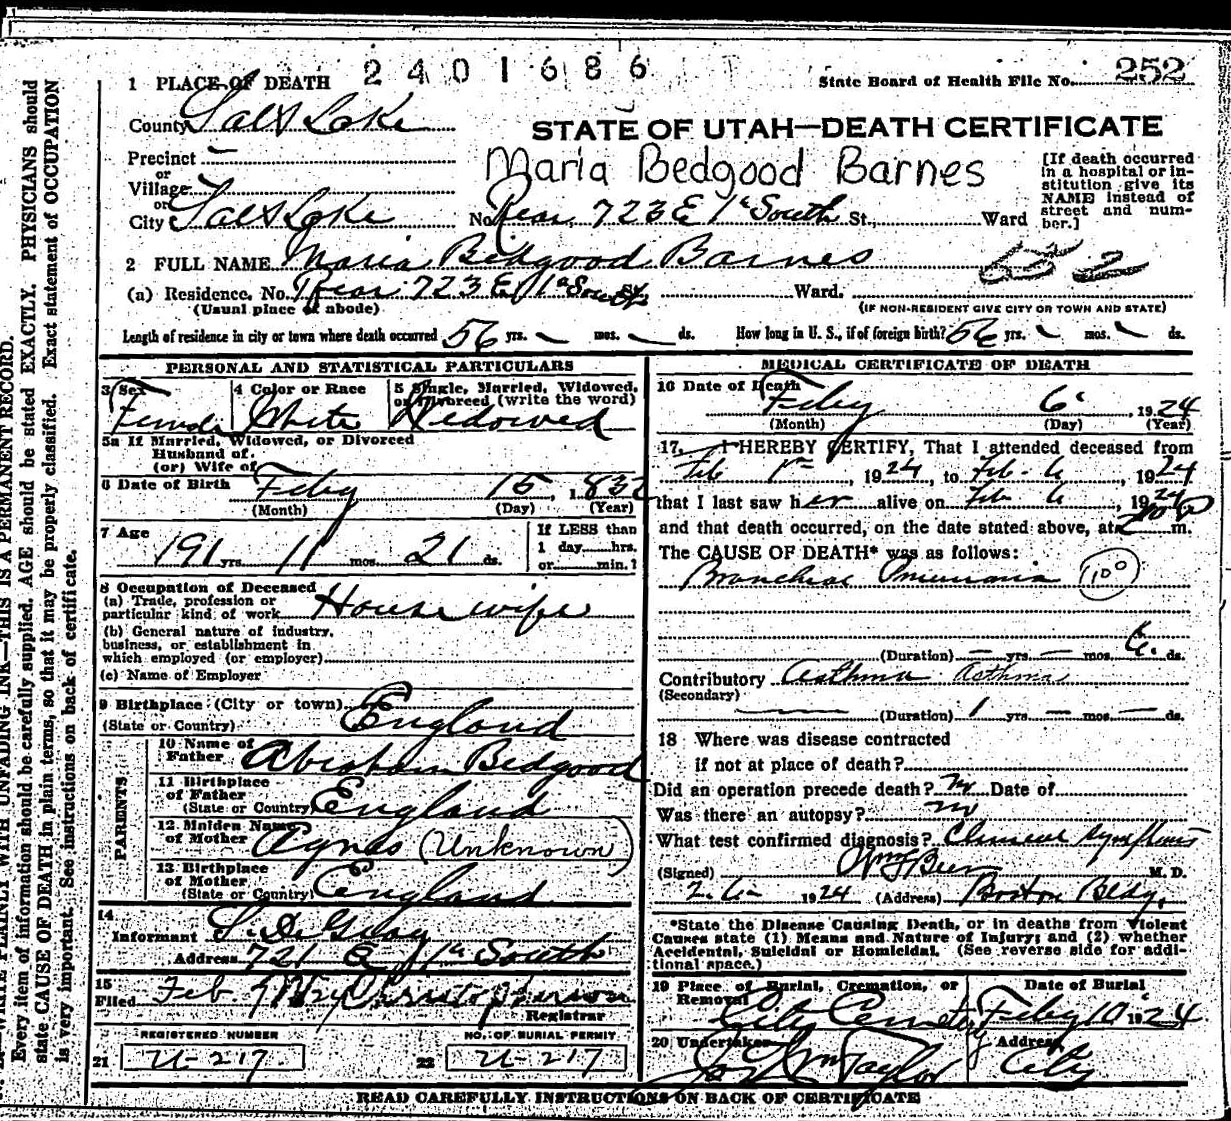 2401686
1 PLACE OF DEATH
State Board of Health File No. 252
County Salt Lake
STATE OF UTAH—DEATH CERTIFICATE
Precinct
or
Village
or
City Salt Lake
Maria Bedgood Barnes
No. Rear, 723 E 1st South St., Ward
[If death occurred
in a hospital or in-
stitution give its
NAME instead of
street and num-
ber.]
2 FULL NAME Maria Bedgood Barnes
(a) Residence. No. Rear 723 E 1st South St. Ward.
(Usual place of abode)
(IF NON-RESIDENT GIVE CITY OR TOWN AND STATE)
Length of residence in city or town where death occurred 56 yrs. - mos. - ds. How long in U. S., if of foreign birth? 56 yrs. - mos. - ds.
PERSONAL AND STATISTICAL PARTICULARS
3 Sex
Female
4 Color or Race
White
5 Single, Married, Widowed,
or Divorced (write the word)
Widowed
5a If Married, Widowed, or Divorced
Husband of
(or) Wife of
6 Date of Birth Feby 15, 1832
(Month) (Day) (Year)
7 Age
191 yrs. 11 mos. 21 ds.
If LESS than
1 day......hrs.
or......min.?
8 Occupation of Deceased
(a) Trade, profession or
particular kind of work House wife
(b) General nature of industry,
business, or establishment in
which employed (or employer)
(c) Name of Employer
9 Birthplace (City or town)
(State or Country) England
PARENTS
10 Name of
Father Abraham Bedgood
11 Birthplace
of Father
(State or Country) England
12 Maiden Name
of Mother Agnes (Unknown)
13 Birthplace
of Mother
(State or Country) England
14
Informant
Address 721 E 1st South
15
Filed Feb
Registrar
REGISTERED NUMBER
21 U-217.
NO. OF BURIAL PERMIT
22 U-217.
MEDICAL CERTIFICATE OF DEATH
16 Date of Death
Feby 6, 1924
(Month) (Day) (Year)
17. I HEREBY CERTIFY, That I attended deceased from
Feb 1st, 1924, to Feb. 6, 1924
that I last saw her alive on Feb 6, 1924
and that death occurred, on the date stated above, at m.
The CAUSE OF DEATH* was as follows:
Bronchial Pneumonia 100
(Duration) - yrs. - mos. 6. ds.
Contributory Asthma Asthma
(Secondary)
(Duration) 1 yrs. - mos. - ds.
18 Where was disease contracted
if not at place of death?
Did an operation precede death? No Date of
Was there an autopsy? no
What test confirmed diagnosis? Clinical symptoms
(Signed) M. D.
2-6- 1924 (Address) Boston Bldg.
*State the Disease Causing Death, or in deaths from Violent
Causes state (1) Means and Nature of Injury; and (2) whether
Accidental, Suicidal or Homicidal. (See reverse side for addi-
tional space.)
19 Place of Burial, Cremation, or
Removal
City Cemetery
Date of Burial
Feby 10 1924
20 Undertaker
Jos Wm Taylor
Address
City
READ CAREFULLY INSTRUCTIONS ON BACK OF CERTIFICATE
WRITE PLAINLY WITH UNFADING INK—THIS IS A PERMANENT RECORD.
Every item of information should be carefully supplied. AGE should be stated EXACTLY. PHYSICIANS should
state CAUSE OF DEATH in plain terms, so that it may be properly classified. Exact statement of OCCUPATION
is very important. See instructions on back of certificate.